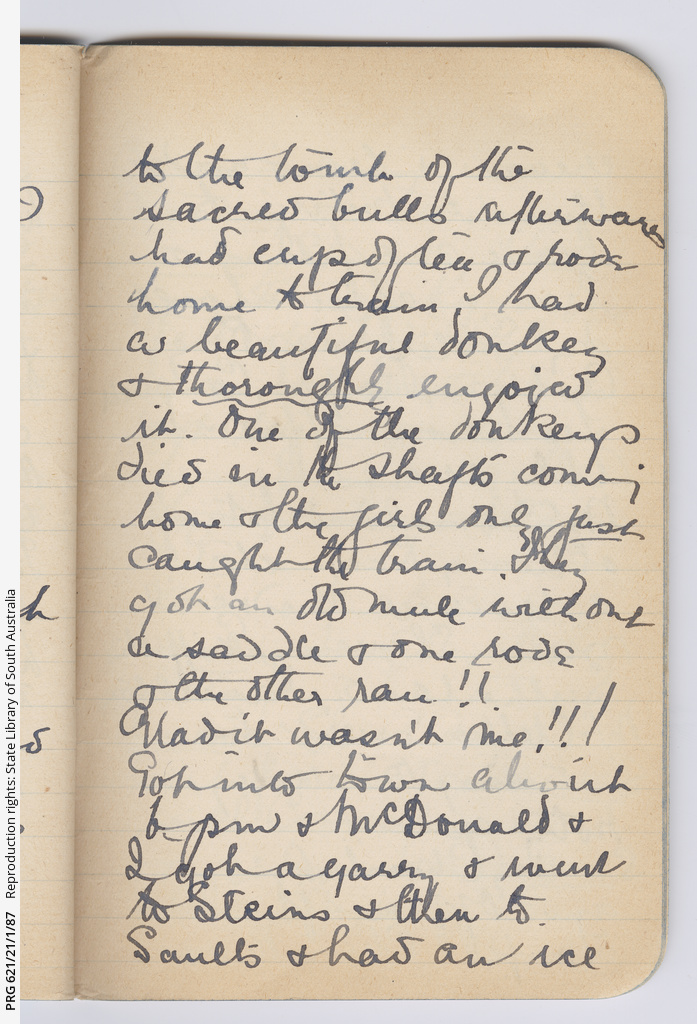 to the tomb of the
sacred bulls afterwards
had cup of tea & rode
home to train. I had
a beautiful donkey
& thoroughly enjoied
it. One of the donkeys
died in the shafts coming
home & the girls only just
caught the train. They
got an old mule without
a saddle & one rode
& the other ran!!
Glad it wasn't me!!!
Got into town about
6 pm & McDonald &
I got a garry & went
to Steins & then to
Saults & had an ice
h
d
PRG 621/21/1/87 Reproduction rights: State Library of South Australia